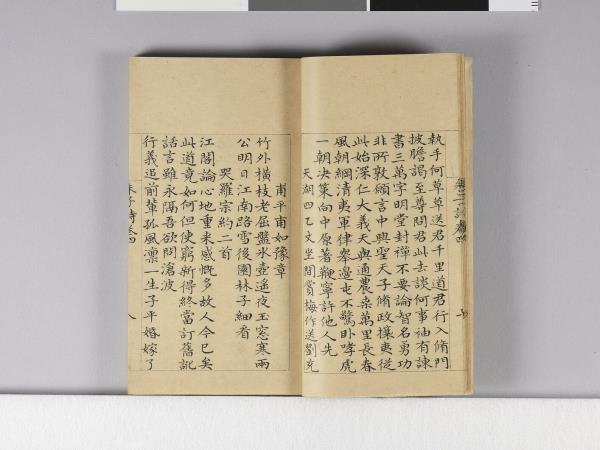 執手何草草送君千里道君行入脩門
披膽謁至尊問君此去談何事袖有諫
書三萬字明堂封禪不要論智名勇功
非所敦願言中興聖天子脩政攘夷從
此始深仁大義天與通農桑萬里長春
風朝綱清夷軍律舉邊屯不驚卧哮虎
一朝决策向中原著鞭寧許他人先
天湖四乙丈坐間賞梅作送劉充
甫平甫如豫章
竹外横枝老屈盤氷壺遥夜玉窓寒兩
公明日江南路雪後園林子細看
哭羅宗約二首
江閣論心地重来感慨多故人今已矣
此道竟如何但使窮新得終當訂舊訛
話言雖永隔吾欲問滄波
行義追前輩孤風凛一生子平婚嫁了
朱子詩卷四
八